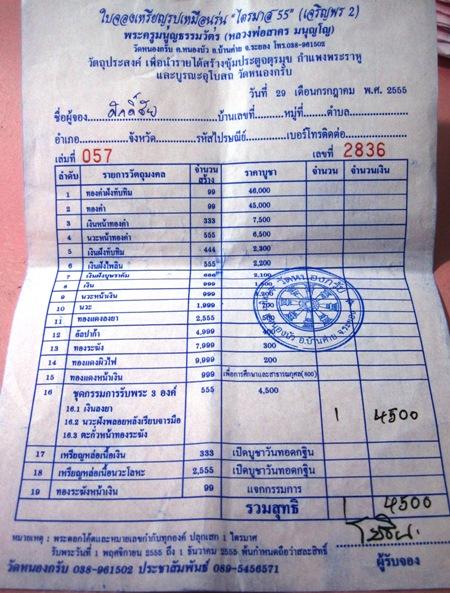 ใบจองเหรียญรูปเหมือนรุ่น "ไตรมาส 55" (เจริญพร 2)
พระครูมนูญธรรมวัตร (หลวงพ่อสาคร มนุญโญ)
วัดหนองกรับ ต.หนองบัว อ.บ้านค่าย จ.ระยอง โทร.038-961502
วัตถุประสงค์ เพื่อนำรายได้สร้างซุ้มประตูจตุรมุข กำแพงพระราหู
และบูรณะอุโบสถ วัดหนองกรับ
วันที่ 29 เดือนกรกฎาคม พ.ศ. 2555
ชื่อผู้จอง ศักดิ์ชัย บ้านเลขที่ หมู่ที่ ตำบล
อำเภอ จังหวัด รหัสไปรษณีย์ เบอร์โทรติดต่อ
เล่มที่ 057 เลขที่ 2836
ลำดับ รายการวัตถุมงคล จำนวนสร้าง ราคาบูชา จำนวน จำนวนเงิน
1 ทองคำฝังทับทิม 99 46,000
2 ทองคำ 99 45,000
3 เงินหน้าทองคำ 333 7,500
4 นวะหน้าทองคำ 555 6,500
5 เงินฝังทับทิม 444 2,300
6 เงินฝังไพลิน 555 2,200
7 เงินฝังบุษราคัม 666 2,100
8 เงิน 999
9 นวะหน้าเงิน 999
10 นวะ 1,999
11 ทองแดงลงยา 2,555
12 อัลปาก้า 4,999
13 ทองระฆัง 7,999 300
14 ทองแดงผิวไฟ 9,999 200
15 ทองแดงหน้าเงิน 999 เพื่อการศึกษาและสาธารณกุศล(500)
16 ชุดกรรมการรับพระ 3 องค์ 555 4,500 1 4500
16.1 เงินลงยา
16.2 นวะฝังพลอยหลังเรียบจารมือ
16.3 ตะกั่วหน้าทองระฆัง
17 เหรียญหล่อเนื้อเงิน 333 เปิดบูชาวันทอดกฐิน
18 เหรียญหล่อเนื้อนวะโลหะ 2,555 เปิดบูชาวันทอดกฐิน
19 ทองระฆังหน้าเงิน 99 แจกกรรมการ
รวมสุทธิ 1 4500
หมายเหตุ : พระตอกโค้ดและหมายเลขกำกับทุกองค์ ปลุกเสก 1 ไตรมาศ
รับพระวันที่ 1 พฤศจิกายน 2555 ถึง 1 ธันวาคม 2555 พ้นกำหนดถือว่าสละสิทธิ์
วัดหนองกรับ 038-961502 ประชาสัมพันธ์ 089-5456571 ผู้รับจอง